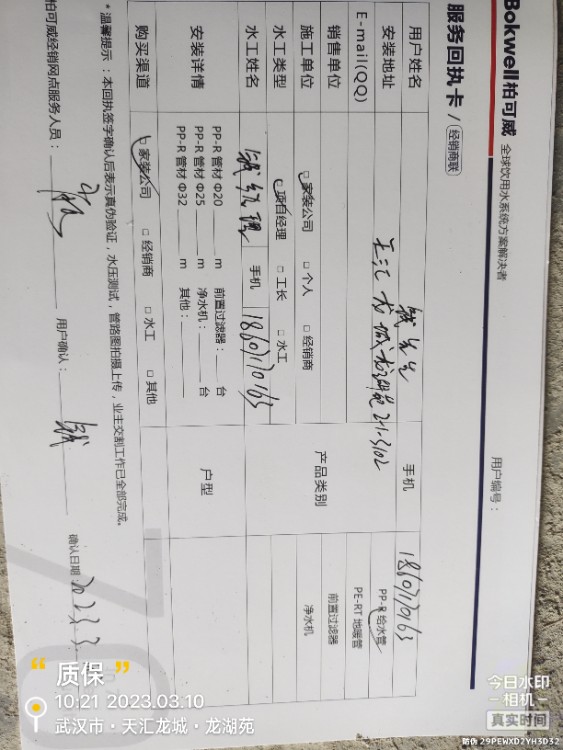 Bokwell柏可威 全球饮用水系统方案解决者
服务回执卡 / 经销商联
用户编号：
用户姓名 钱先生 手机 18607170163
安装地址 天汇龙城龙湖苑 21-3102
E-mail(QQ)
销售单位
产品类别
PP-R 给水管
PE-RT 地暖管
前置过滤器
净水机
施工单位 □家装公司 □ 个人 □ 经销商
水工类型 □ 项目经理 □ 工长 □ 水工
水工姓名 钱经理 手机 18607170163
安装详情
PP-R 管材 Φ20 m 前置过滤器： 台
PP-R 管材 Φ25 m 净水机： 台
PP-R 管材 Φ32 m 其他：
户型
购买渠道 □ 家装公司 □ 经销商 □ 水工 □ 其他
* 温馨提示：本回执签字确认后表示真伪验证，水压测试，管路图拍摄上传，业主交割工作已全部完成。
柏可威经销网点服务人员： 用户确认： 钱 确认日期： 2023.3
“ 质保 ”
10:21 2023.03.10
武汉市·天汇龙城·龙湖苑
今日水印
相机
真实时间
防伪 29PEWXD2YH3D32